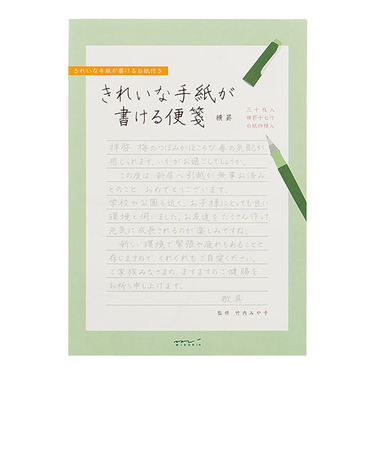 きれいな手紙が書ける台紙付き
きれいな手紙が
書ける便箋 横罫
三十枚入
横罫十七行
台紙四種入
拝啓 梅のつぼみがほころび春の気配が
感じられます。いかがお過ごしでしょうか。
この度は新居へ引越が無事お済み
とのこと、おめでとうございます。
学校や公園も近く、お子様にとっても良い
環境と伺いました。お友達をたくさん作って
元気に成長されるのが楽しみですね。
新しい環境で緊張や疲れもあることと
存じますので くれぐれもご自愛ください。
ご家族みなさまの、ますますのご健勝を
お祈り申し上げます。
敬具
監修 竹内みや子
MIDORI